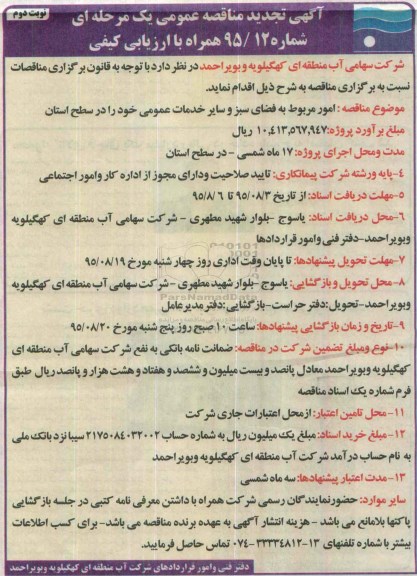 نوبت دوم
آگهی تجدید مناقصه عمومی یک مرحله ای
شماره ۹۵/۱۲ همراه با ارزیابی کیفی
شرکت سهامی آب منطقه ای کهگیلویه و بویراحمد در نظر دارد با توجه به قانون برگزاری مناقصات
نسبت به برگزاری مناقصه به شرح ذیل اقدام نماید.
موضوع مناقصه : امور مربوط به فضای سبز و سایر خدمات عمومی خود را در سطح استان
مبلغ برآورد پروژه: ۱۰,۴۱۳,۵۶۷,۹۴۷ ریال
مدت ومحل اجرای پروژه: ۱۷ ماه شمسی - در سطح استان
۴-پایه ورشته شرکت پیمانکاری: تایید صلاحیت ودارای مجوز از اداره کار وامور اجتماعی
۵-مهلت دریافت اسناد: از تاریخ ۹۵/۰۸/۳ تا ۹۵/۸/۶
۶-محل دریافت اسناد: یاسوج -بلوار شهید مطهری - شرکت سهامی آب منطقه ای کهگیلویه
وبویراحمد-دفتر فنی وامور قراردادها
۷-مهلت تحویل پیشنهادها: تا پایان وقت اداری روز چهار شنبه مورخ ۹۵/۰۸/۱۹
۸-محل تحویل و بازگشایی: یاسوج -بلوار شهید مطهری - شرکت سهامی آب منطقه ای کهگیلویه
وبویراحمد-تحویل:دفتر حراست-بازگشایی:دفتر مدیرعامل
۹-تاریخ و زمان بازگشایی پیشنهادها: ساعت ۱۰ صبح روز پنج شنبه مورخ ۹۵/۰۸/۲۰
۱۰-نوع ومبلغ تضمین شرکت در مناقصه: ضمانت نامه بانکی به نفع شرکت سهامی آب منطقه ای
کهگیلویه وبویراحمد معادل پانصد و بیست میلیون و ششصد و هفتاد و هشت هزار و پانصد ریال طبق
فرم شماره یک اسناد مناقصه
۱۱-محل تامین اعتبار: ازمحل اعتبارات جاری شرکت
۱۲-مبلغ خرید اسناد: مبلغ یک میلیون ریال به شماره حساب ۲۱۷۵۰۸۴۰۳۲۰۰۲ سیبا نزد بانک ملی
به نام حساب درآمد شرکت آب منطقه ای کهگیلویه وبویراحمد
۱۳-مدت اعتبار پیشنهادها: سه ماه شمسی
سایر موارد: حضور نمایندگان رسمی شرکت همراه با داشتن معرفی نامه کتبی در جلسه بازگشایی
پاکتها بلامانع می باشد - هزینه انتشار آگهی به عهده برنده مناقصه می باشد- برای کسب اطلاعات
بیشتر با شماره تلفنهای ۱۳-۳۳۳۳۴۸۱۲-۰۷۴ تماس حاصل فرمایید.
دفتر فنی وامور قراردادهای شرکت آب منطقه ای کهگیلویه وبویراحمد